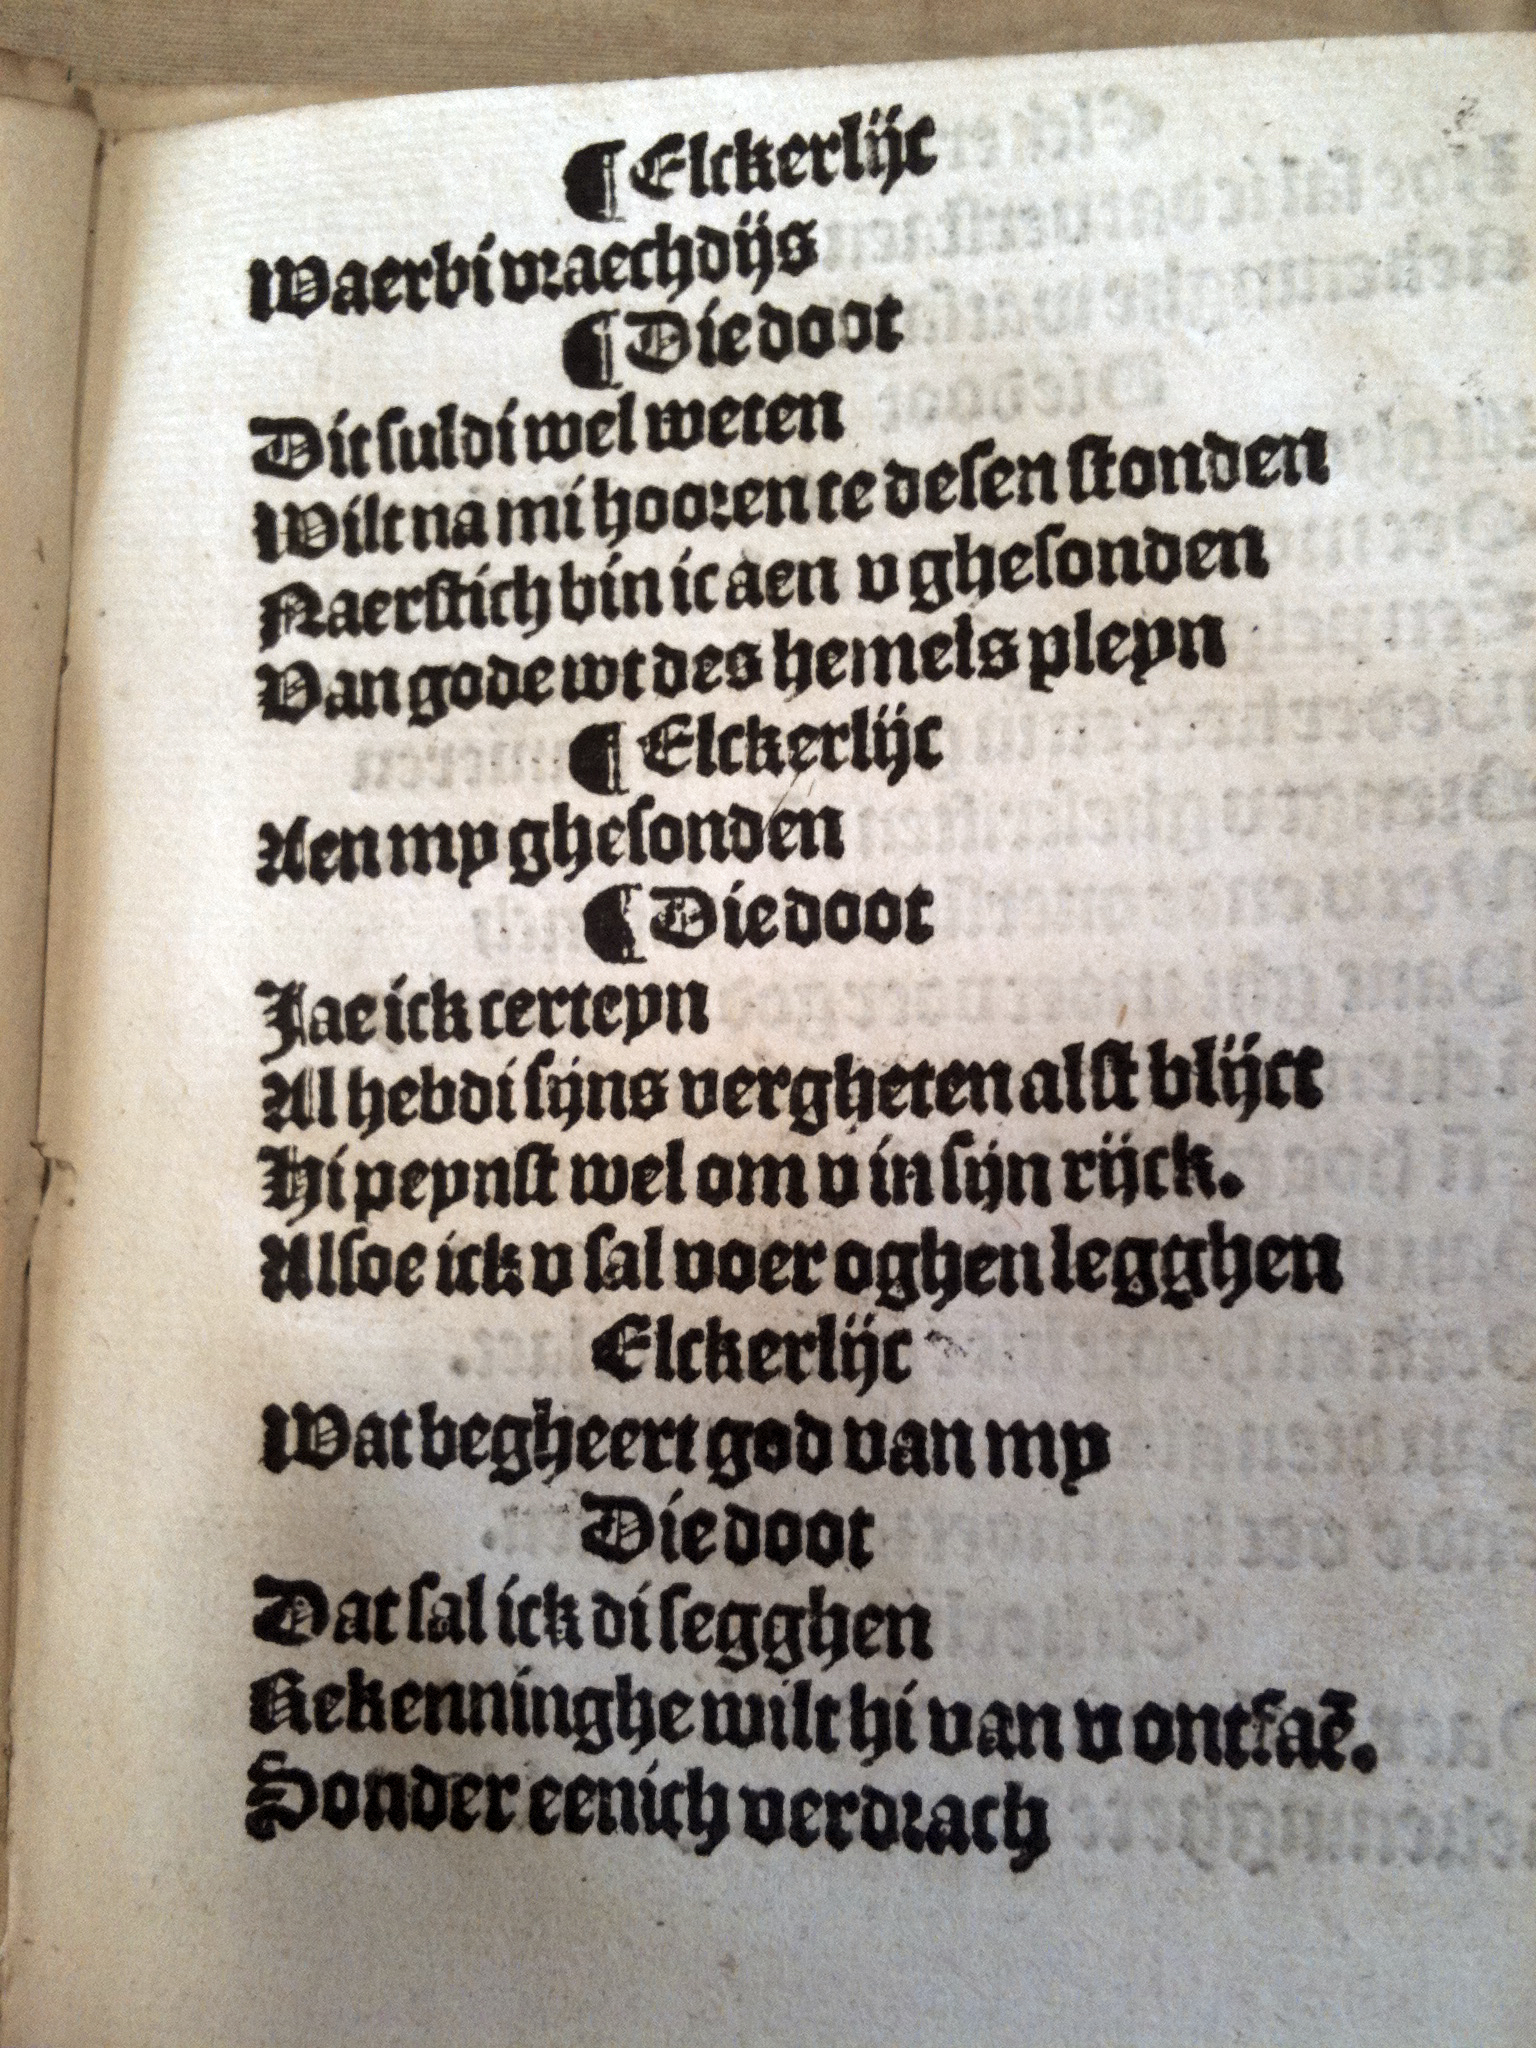 ¶ Elckerlijc
Waerbi vraechdijs
¶ Die doot
Dit suldi wel weten
Wilt na mi hooren te desen stonden
Naerstich bin ic aen v ghesonden
Van gode wt des hemels pleyn
¶ Elckerlijc
Aen my ghesonden
¶ Die doot
Jae ick certeyn
Al hebdi sijns vergheten alst blijct
Hi peynst wel om v in sijn rijck.
Alsoe ick v sal voer oghen legghen
Elckerlijc
Wat begheert god van my
Die doot
Dat sal ick di segghen
Rekenninghe wilt hi van v ontfaē.
Sonder eenich verdrach